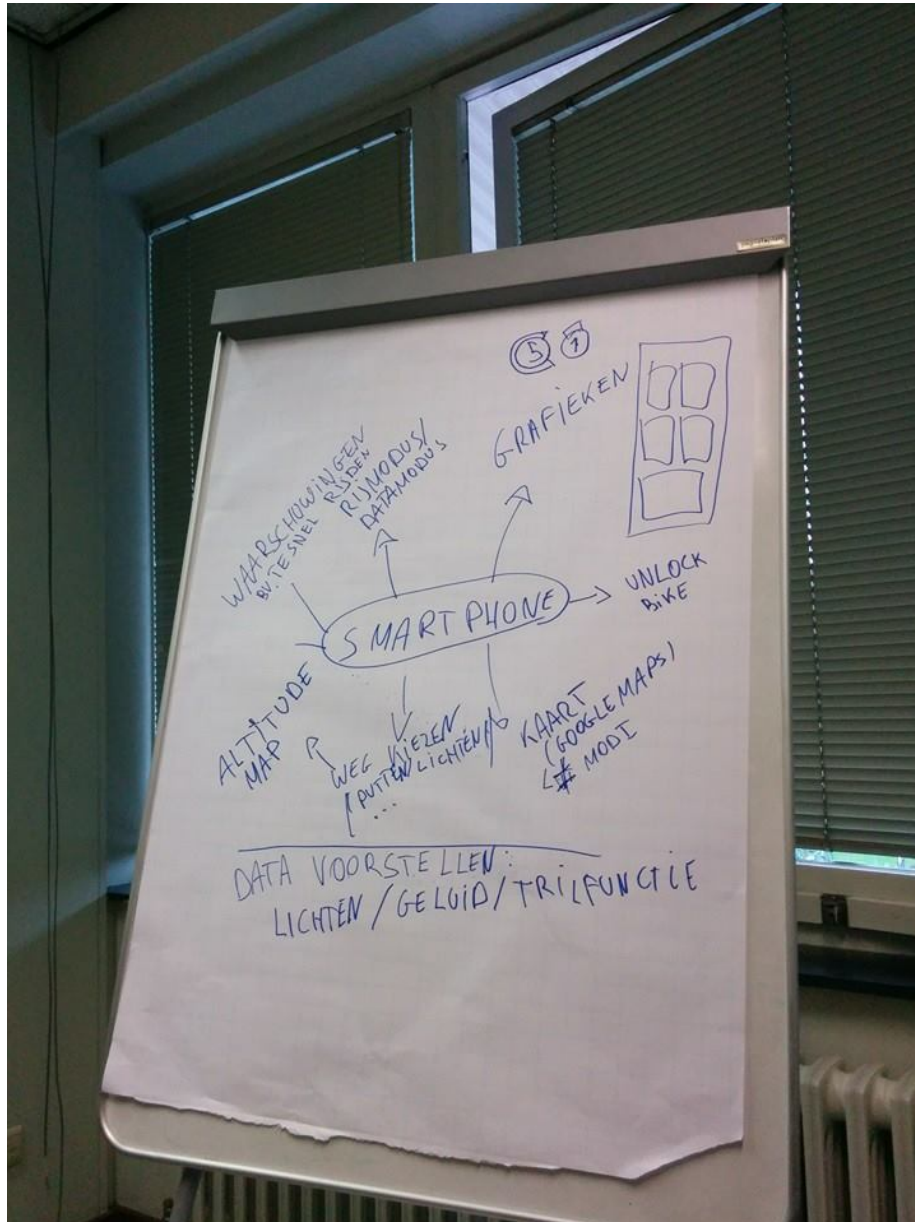 5 7
GRAFIEKEN
WAARSCHUWINGEN
BV. TE SNEL RIJDEN
RIJMODUS/
DATAMODUS
SMARTPHONE
UNLOCK
BIKE
ALTITUDE
MAP
WEG KIEZEN
(PUTTEN/LICHTEN/
...
KAART
(GOOGLE MAPS)
MODI
DATA VOORSTELLEN:
LICHTEN/GELUID/TRILFUNCTIE